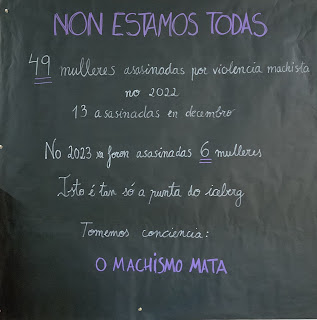 NON ESTAMOS TODAS
49 mulleres asasinadas por violencia machista
no 2022
13 asasinadas en decembro
No 2023 xa foron asasinadas 6 mulleres
Isto é tan só a punta do iceberg
Tomemos conciencia:
O MACHISMO MATA